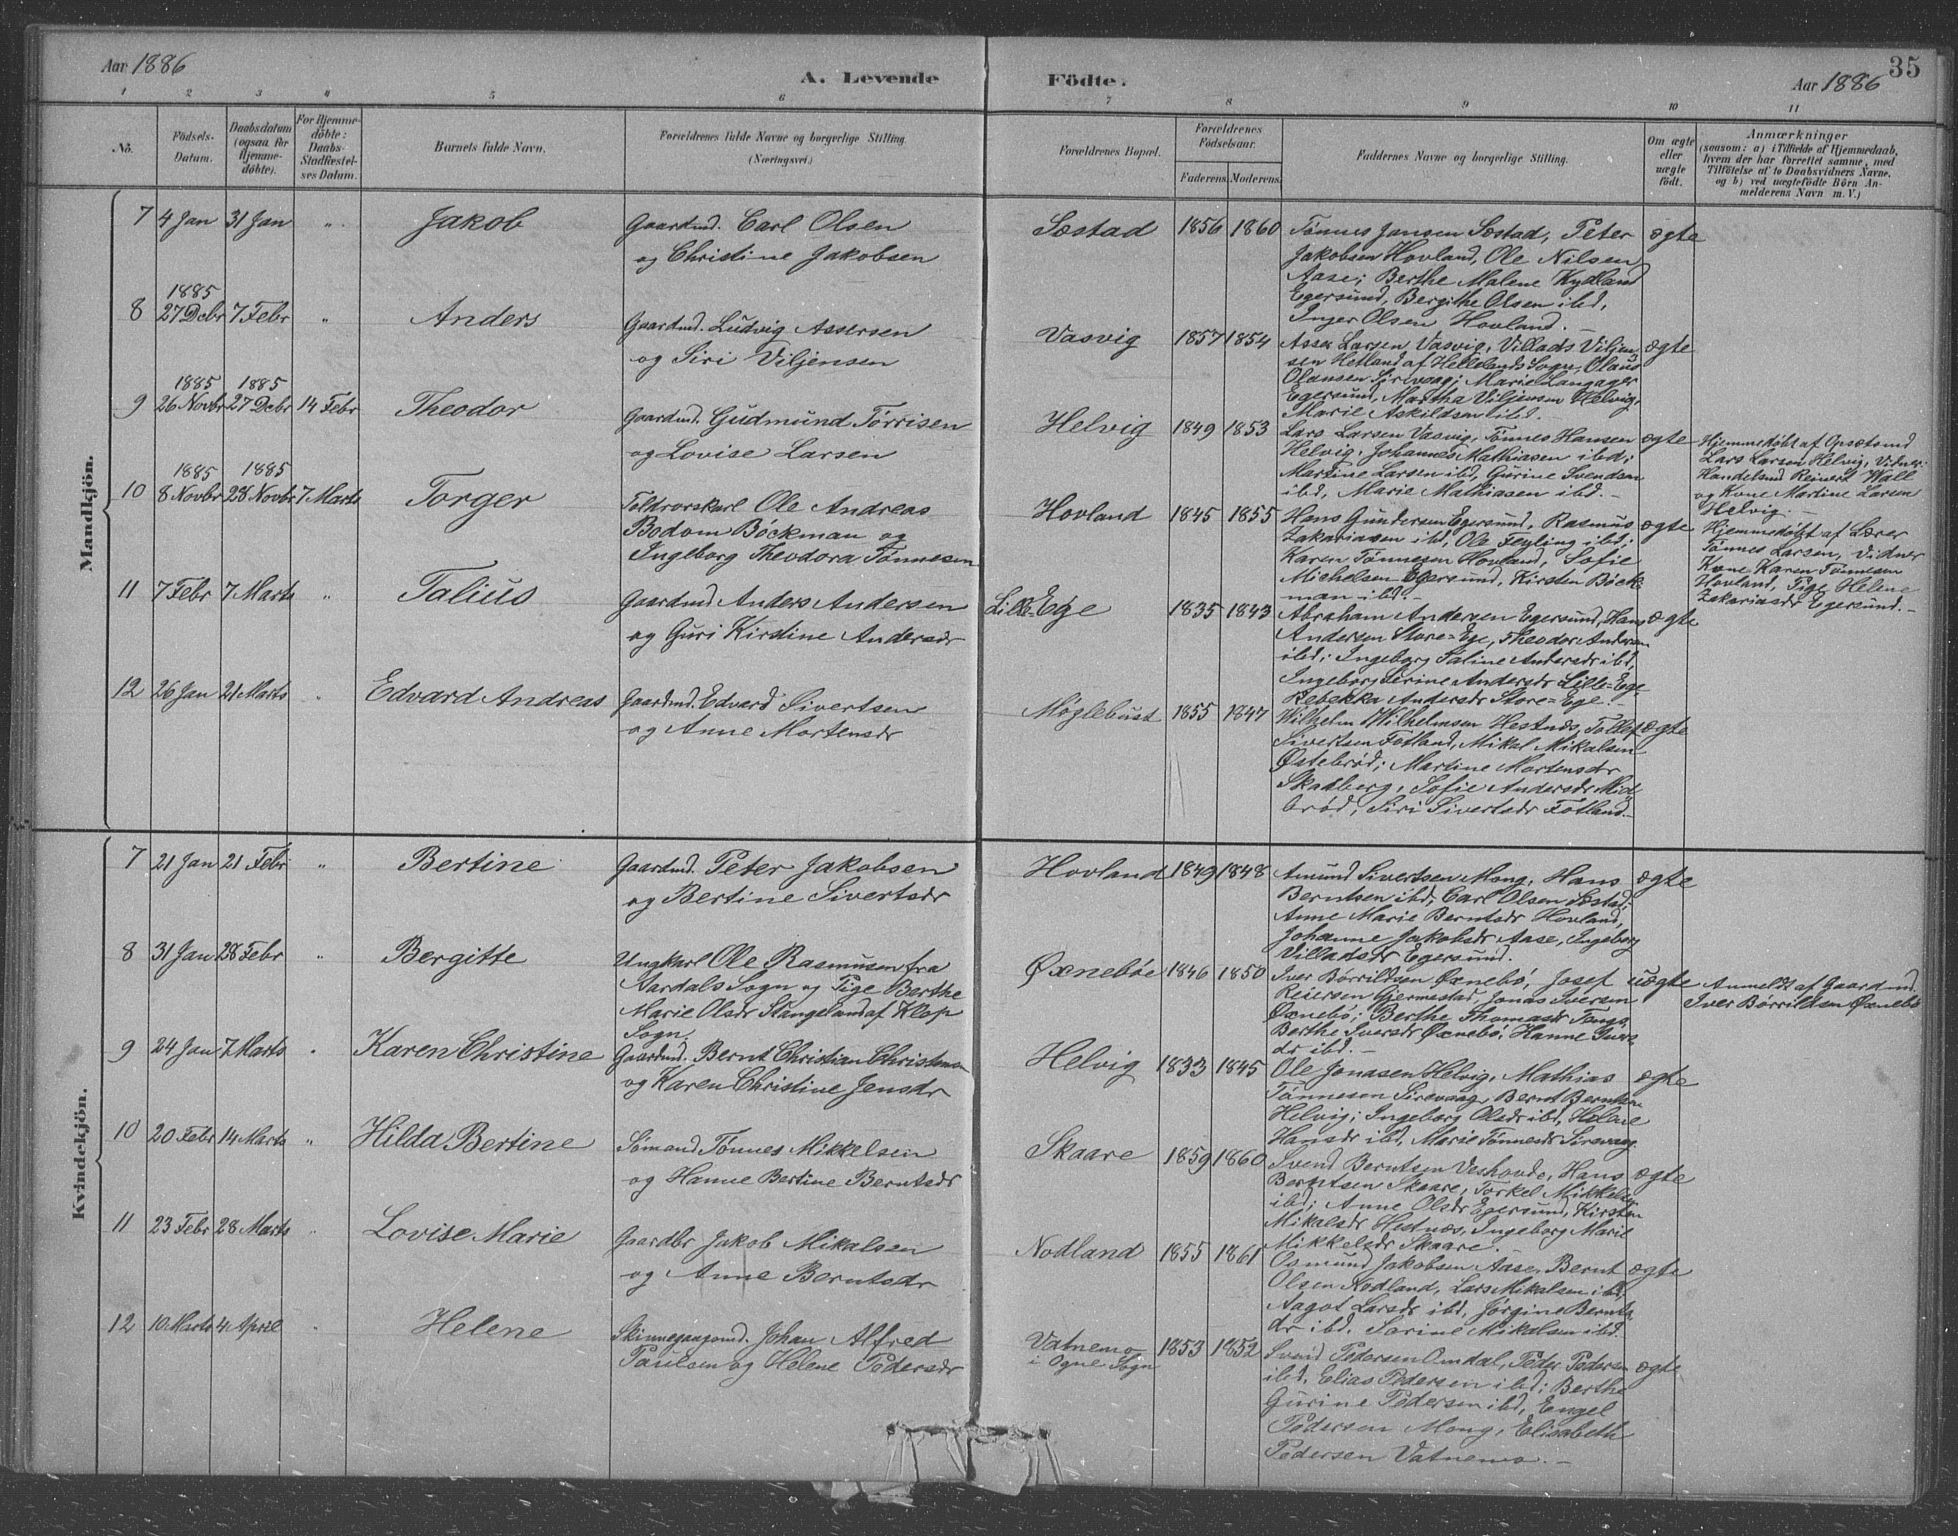 Aar 1886
A. Levende Födte.
35
Aar 1886
1 2 3 4 5 6 7 8 9 10 11
No.
Födsels-
Datum.
Daabsdatum
(ogsaa for
Hjemme-
döbte).
For Hjemme-
döbte:
Daabs-
Stadfæstel-
ses Datum.
Barnets fulde Navn.
Forældrenes fulde Navne og borgerlige Stilling.
(Næringsvei.)
Forældrenes Bopæl.
Forældrenes
Födselsaar.
Faderens. Moderens.
Faddernes Navne og borgerlige Stilling.
Om ægte
eller
uægte
födt.
Anmærkninger
(saasom: a) i Tilfælde af Hjemmedaab,
hvem der har forrettet samme, med
Tilföielse af to Daabsvidners Navne,
og b) ved uægtefödte Börn An-
melderens Navn m. V.)
Mandkjön.
7 4 Jan 31 Jan " Jakob
Gaardmd. Carl Olsen
og Christine Jakobsen
Sæstad 1856 1860
Tønnes Jansen Sæstad, Peter
Jakobsen Hovland, Ole Nilsen
Aase; Berthe Malene Kydland
Egersund, Bergithe Olsen ibd,
Inger Olsen Hovland.
ægte
8 1885
27 Dcbr 7 Febr " Anders
Gaardmd. Ludvig Assersen
og Siri Viljensen
Vasvig 1857 1854
Asser Larsen Vasvig, Villads Viljen-
sen Hetland af Hellelands Sogn, Olaus
Olausen Sirevaag; Marie Langager
Egersund, Martha Viljensen Helvig,
Marie Askildsen ibd.
ægte
9 1885 1885
26 Novbr 27 Dcbr 14 Febr Theodor
Gaardmd. Gudmund Tørrisen
og Lovise Larsen
Helvig 1849 1853
Lars Larsen Vasvig, Tønnes Hansen
Helvig, Johannes Mathiasen ibd;
Martine Larsen ibd, Gurine Svendsen
ibd, Marie Mathiasen ibd.
ægte
Hjemmedøbt af Opsætsmd
Lars Larsen Helvig, Vidner:
Handelsmd Reinert Wall
og Kone Martine Larsen
Helvig.
10 1885 1885
8 Novbr 28 Novbr 7 Marts Torger
Toldrorskarl Ole Andreas
Bodom Böckman og
Ingeborg Theodora Tønnesen
Hovland 1845 1855
Hans Gundersen Egersund, Rasmus
Zakariasen ibd, Ole Feyling ibd;
Karen Tønnesen Hovland, Sofie
Michelsen Egersund, Kirsten Böck-
man ibd.
ægte
Hjemmedøbt af Lærer
Tønnes Larsen, Vidner
Kone Karen Tønnesen
Hovland, Pige Helene
Zakariasdr Egersund.
11 7 Febr 7 Marts " Talius
Gaardmd Anders Andersen
og Guri Kirstine Andersdr
Lille-Ege 1835 1843
Abraham Andersen Egersund, Hans
Andersen Store=Ege, Theodor Andersen
ibd; Ingeborg Taline Andersdr ibd,
Ingeborg Serine Andersdr Lille=Ege
Rebekka Andersdr Store=Ege.
ægte
12 26 Jan 21 Marts " Edvard Andreas
Gaardmd. Edvard Sivertsen
og Anne Mortensdr
Møglebust 1855 1847
Wilhelm Wilhelmsen Hestnæs, Tollef
Sivertsen Fotland, Mikal Mikalsen
Østebrød; Martine Mortensdr
Skadberg, Sofie Andersdr Mid-
brød, Siri Sivertsdr Fotland.
ægte
Kvindekjön.
7 21 Jan 21 Febr " Bertine
Gaardmd. Peter Jakobsen
og Bertine Sivertsdr
Hovland 1849 1848
Amund Sivertsen Mong, Hans
Berntsen ibd, Carl Olsen Sæstad;
Anne Marie Berntsdr Hovland,
Johanne Jakobsdr Aase, Ingeborg
Villadsdr Egersund.
ægte
8 31 Jan 28 Febr " Bergitte
Ungkarl Ole Rasmusen fra
Aardals Sogn og Pige Berthe
Marie Olsdr Stangeland af Klep
Sogn
Øxnebøe 1846 1850
Iver Børrildsen Øxnebø, Josef
Reiersen Gjermestad, Jonas Iversen
Øxnebø; Berthe Thomasdr
Berthe Iversdr Øxnebø, Hanne Ivers-
dr ibd.
uægte
Anmeldt af Gaardmd.
Iver Børrildsen Øxnebø
9 24 Jan 7 Marts " Karen Christine
Gaardmd. Bernt Christian Christensen
og Karen Christine Jensdr
Helvig 1833 1845
Ole Jonasen Helvig, Mathias
Tønnesen Sirevaag, Bernt Berntsen
Helvig; Ingeborg Olsdr ibd, Helene
Hansdr ibd, Marie Tønnesdr Sirevaag
ægte
10 20 Febr 14 Marts " Hilda Bertine
Sømand Tønnes Mikkelsen
og Hanne Bertine Berntsdr
Skaare 1859 1860
Svend Berntsen Veshovde, Hans
Berntsen Skaare, Torkel Mikkelsen
ibd; Anne Olsdr Egersund, Kirsten
Mikalsdr Hestnæs, Ingeborg Marie
Mikkelsdr Skaare.
ægte
11 23 Febr 28 Marts " Lovise Marie
Gaardbr Jakob Mikalsen
og Anne Berntsdr
Nodland 1855 1861
Osmund Jakobsen Aase, Bernt
Olsen Nodland, Lars Mikalsen ibd,
Aagot Larsdr ibd, Jørgine Bernts-
dr ibd, Sorine Mikalsen ibd.
ægte
12 10 Marts 4 April " Helene
Skinnegangsmd. Johan Alfred
Paulsen og Helene Pedersdr
Vatnemo
i Ogne Sogn
1853 1852
Svend Pedersen Omdal, Peder Pedersen
ibd, Elias Pedersen ibd; Berthe
Gurine Pedersen ibd, Engel
Pedersen Mong, Elisabeth
Pedersen Vatnemo.
ægte